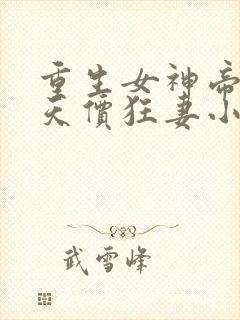 重生女神帝
天價狂妻小
武雪峰